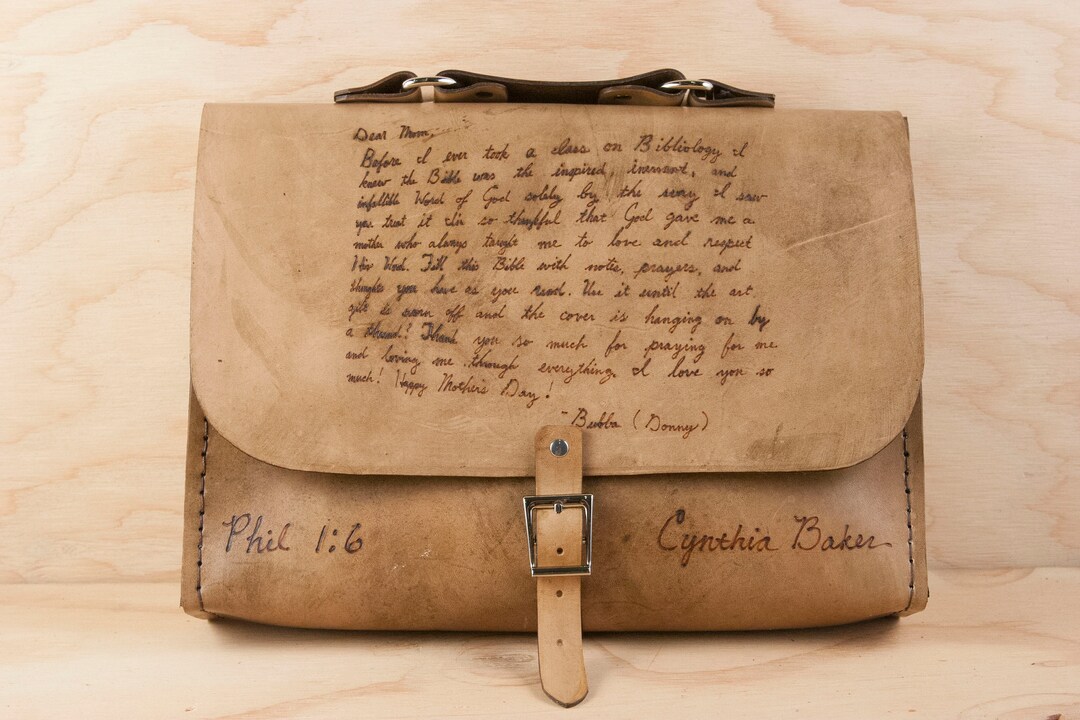 Dear Mom,
Before I ever took a class on Bibliology I
knew the Bible was the inspired, inerrant, and
infallible Word of God solely by the way I saw
you treat it. I'm so thankful that God gave me a
mother who always taught me to love and respect
His Word. Fill this Bible with notes, prayers, and
thoughts you have as you read. Use it until the art
gilt is worn off and the cover is hanging on by
a thread! Thank you so much for praying for me
and loving me through everything. I love you so
much! Happy Mother's Day!
- Bubba (Donny)
Phil 1:6
Cynthia Baker